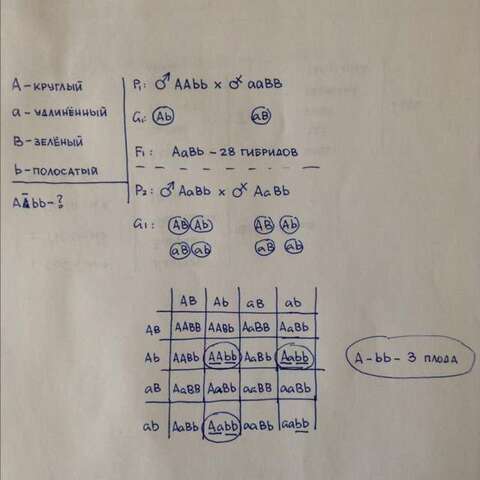 A – КРУГЛЫЙ
a – УДЛИНЁННЫЙ
B – ЗЕЛЁНЫЙ
b – ПОЛОСАТЫЙ
A_bb – ?
P₁: ♂ AAbb × ♂ aaBB
G₁: Ab aB
F₁: AaBb – 28 ГИБРИДОВ
P₂: ♂ AaBb × ♂ AaBb
G₁: AB Ab AB Ab
aB ab aB ab
AB Ab aB ab
AB AABB AABb AaBB AaBb
Ab AABb AAbb AaBb Aabb
aB AaBB AaBb aaBB aaBb
ab AaBb Aabb aaBb aabb
A – bb – 3 ПЛОДА